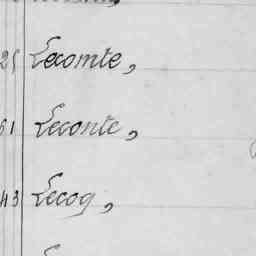 25 Lecomte,
61 Leconte,
43 Lecoq,